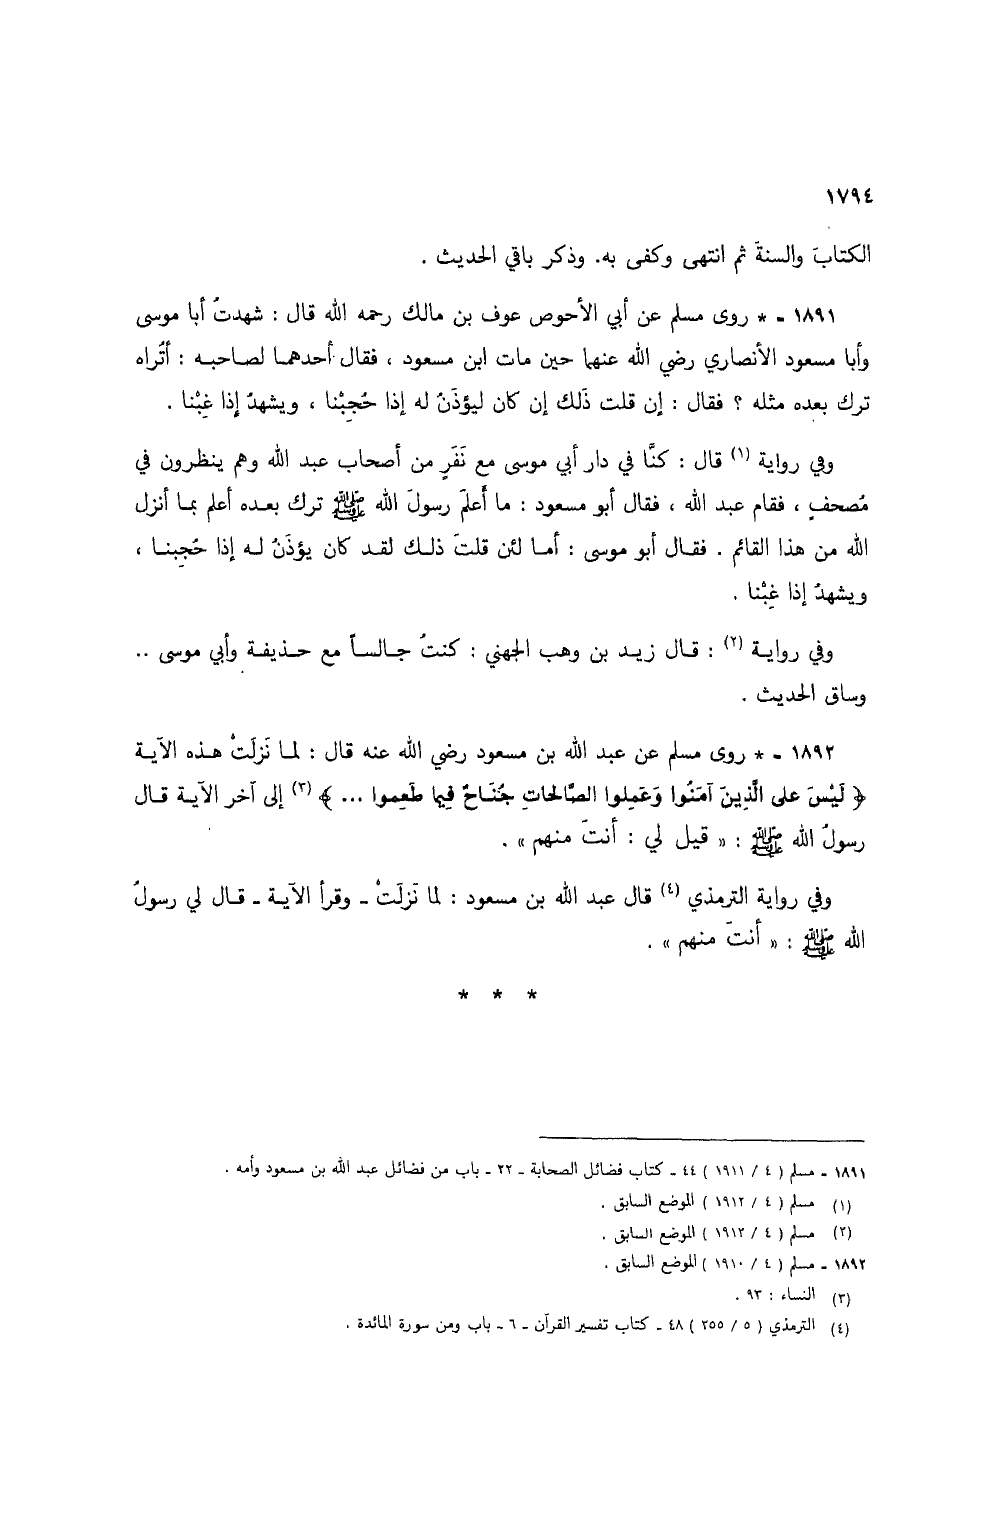 ١٧٩٤
الكتابَ والسنةَ ثم انتهى وكفى به. وذكر باقي الحديث .
١٨٩١ - * روى مسلم عن أبي الأحوص عوف بن مالك رحمه الله قال : شهدتُ أبا موسى
وأبا مسعود الأنصاري رضي الله عنهما حين مات ابن مسعود ، فقال أحدهما لصاحبه : أتُراه
ترك بعده مثله ؟ فقال : إن قلت ذَلك إن كان ليؤذَنُ له إذا حُجِبْنا ، ويشهدُ إذا غِبْنا .
وفي رواية (١) قال : كنَّا في دار أبي موسى مع نَفَرٍ من أصحاب عبد الله وهم ينظرون في
مُصحفٍ ، فقام عبد الله ، فقال أبو مسعود : ما أَعلَم رسولَ الله ﷺ ترك بعده أعلم بما أنزل
الله من هذا القائم . فقال أبو موسى : أما لئن قلتَ ذلك لقد كان يؤذَنُ له إذا حُجِبنا ،
ويشهدُ إذا غِبْنا .
وفي رواية (٢) : قال زيد بن وهب الجهني : كنتُ جالساً مع حذيفة وأبي موسى ..
وساق الحديث .
١٨٩٢ - * روى مسلم عن عبد الله بن مسعود رضي الله عنه قال : لما نَزلَتْ هذه الآية
﴿ لَيْسَ على الَّذِينَ آمَنُوا وَعَمِلوا الصَّالحاتِ جُنَاحٌ فِيما طَعِموا ... ﴾ (٣) إلى آخر الآية قال
رسولُ الله ﷺ : « قيل لي : أنتَ منهم » .
وفي رواية الترمذي (٤) قال عبد الله بن مسعود : لما نَزلَتْ - وقرأ الآية - قال لي رسولُ
الله ﷺ : « أنتَ منهم » .
* * *
١٨٩١ - مسلم ( ٤ / ١٩١١ ) ٤٤ - كتاب فضائل الصحابة - ٢٢ - باب من فضائل عبد الله بن مسعود وأمه .
(١) مسلم ( ٤ / ١٩١٢ ) الموضع السابق .
(٢) مسلم ( ٤ / ١٩١٢ ) الموضع السابق .
١٨٩٢ - مسلم ( ٤ / ١٩١٠ ) الموضع السابق .
(٣) النساء : ٩٣ .
(٤) الترمذي ( ٥ / ٢٥٥ ) ٤٨ - كتاب تفسير القرآن - ٦ - باب ومن سورة المائدة .